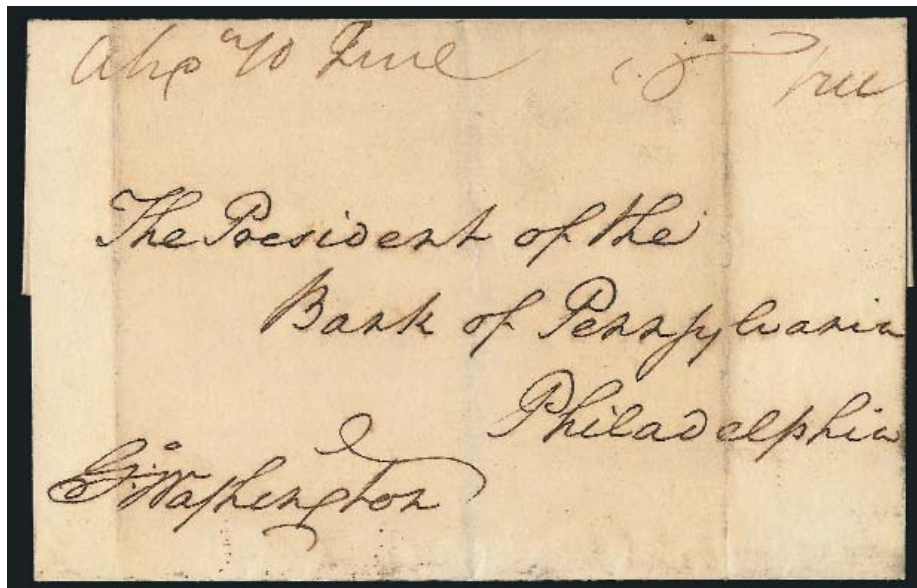 Alxa 10 June free
The President of the
Bank of Pennsylvania
Philadelphia
Go: Washington